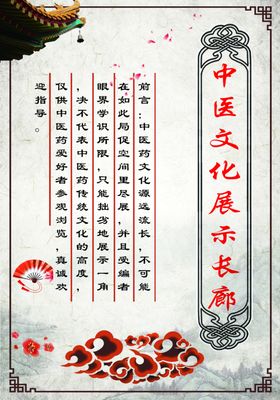 中医文化展示长廊
前言：中医药文化源远流长，不可能
在如此局促空间里尽展，并且受编者
眼界学识所限，只能拙劣地展示一角
，决不代表中医药传统文化的高度，
仅供中医药爱好者参观浏览，真诚欢
迎指导。